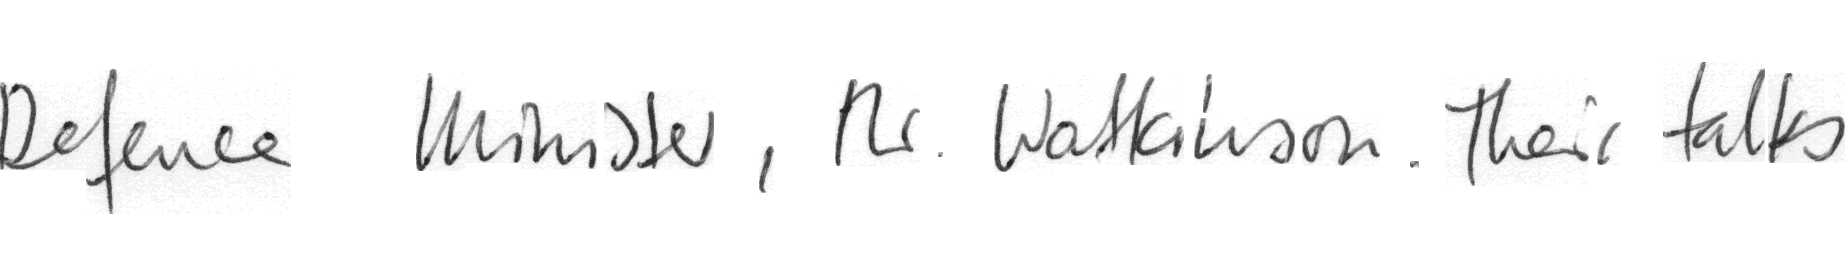 Defence Minister, Mr. Watkinson. Their talks